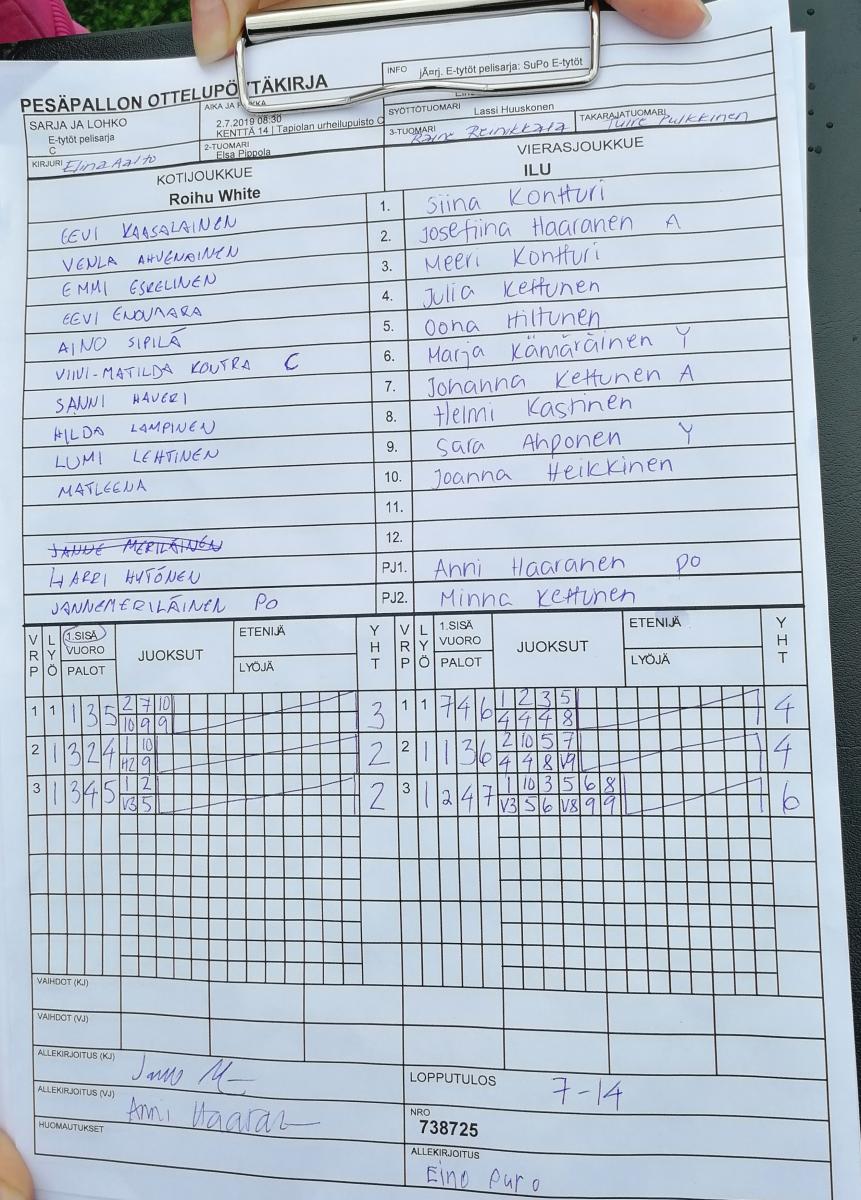 PESÄPALLON OTTELUPÖYTÄKIRJA
INFO jÄ¤rj. E-tytöt pelisarja: SuPo E-tytöt
SARJA JA LOHKO
E-tytöt pelisarja
C
AIKA JA
2.7.2019 08:30
KENTTÄ 14 | Tapiolan urheilupuisto C
SYÖTTÖTUOMARI Lassi Huuskonen
KIRJURI Elina Aalto
2-TUOMARI
Elsa Pippola
3-TUOMARI Raine Reinikkala
TAKARAJATUOMARI
Tuire Pulkkinen
KOTIJOUKKUE
Roihu White
VIERASJOUKKUE
ILU
EEVI KAASALAINEN 1. Siina Kontturi
VENLA AHVENAINEN 2. Josefiina Haaranen A
EMMI ESKELINEN 3. Meeri Kontturi
EEVI 4. Julia Kettunen
AINO SIPILÄ 5. Oona Hiltunen
VIIVI-MATILDA KOUTRA C 6. Marja Kämäräinen Y
SANNI HAVERI 7. Johanna Kettunen A
HILDA LAMPINEN 8. Helmi Kastinen
LUMI LEHTINEN 9. Sara Ahponen Y
MATLEENA 10. Joanna Heikkinen
11.
JANNE MERILÄINEN 12.
HARRI HYTÖNEN PJ1. Anni Haaranen PO
JANNE MERILÄINEN PO PJ2. Minna Kettunen
VRP LYÖ 1.SISÄ VUORO PALOT JUOKSUT ETENIJÄ LYÖJÄ YHT VRP LYÖ 1.SISÄ VUORO PALOT JUOKSUT ETENIJÄ LYÖJÄ YHT
1 1 1 3 5 2 7 10 3 1 1 7 4 6 1 2 3 5 4
10 9 9 4 4 4 8
2 1 3 2 4 1 10 2 2 1 1 3 6 2 10 5 7 4
H2 9 4 4 8 V9
3 1 3 4 5 1 2 2 3 1 2 4 7 1 10 3 5 6 8 6
V3 5 V3 5 6 V8 9 9
VAIHDOT (KJ)
VAIHDOT (VJ)
ALLEKIRJOITUS (KJ)
LOPPUTULOS 7-14
ALLEKIRJOITUS (VJ) Anni
NRO
738725
HUOMAUTUKSET
ALLEKIRJOITUS
Eino Puro